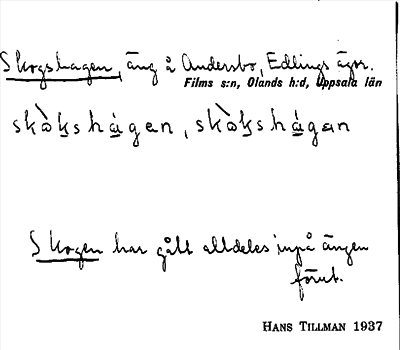 Skogshagen, äng å Andersbo, Edlings ägor.
Films s:n, Olands h:d, Uppsala län
skòkshágen, skòkshágan
Skogen har gått alldeles inpå ängen
förut.
HANS TILLMAN 1937